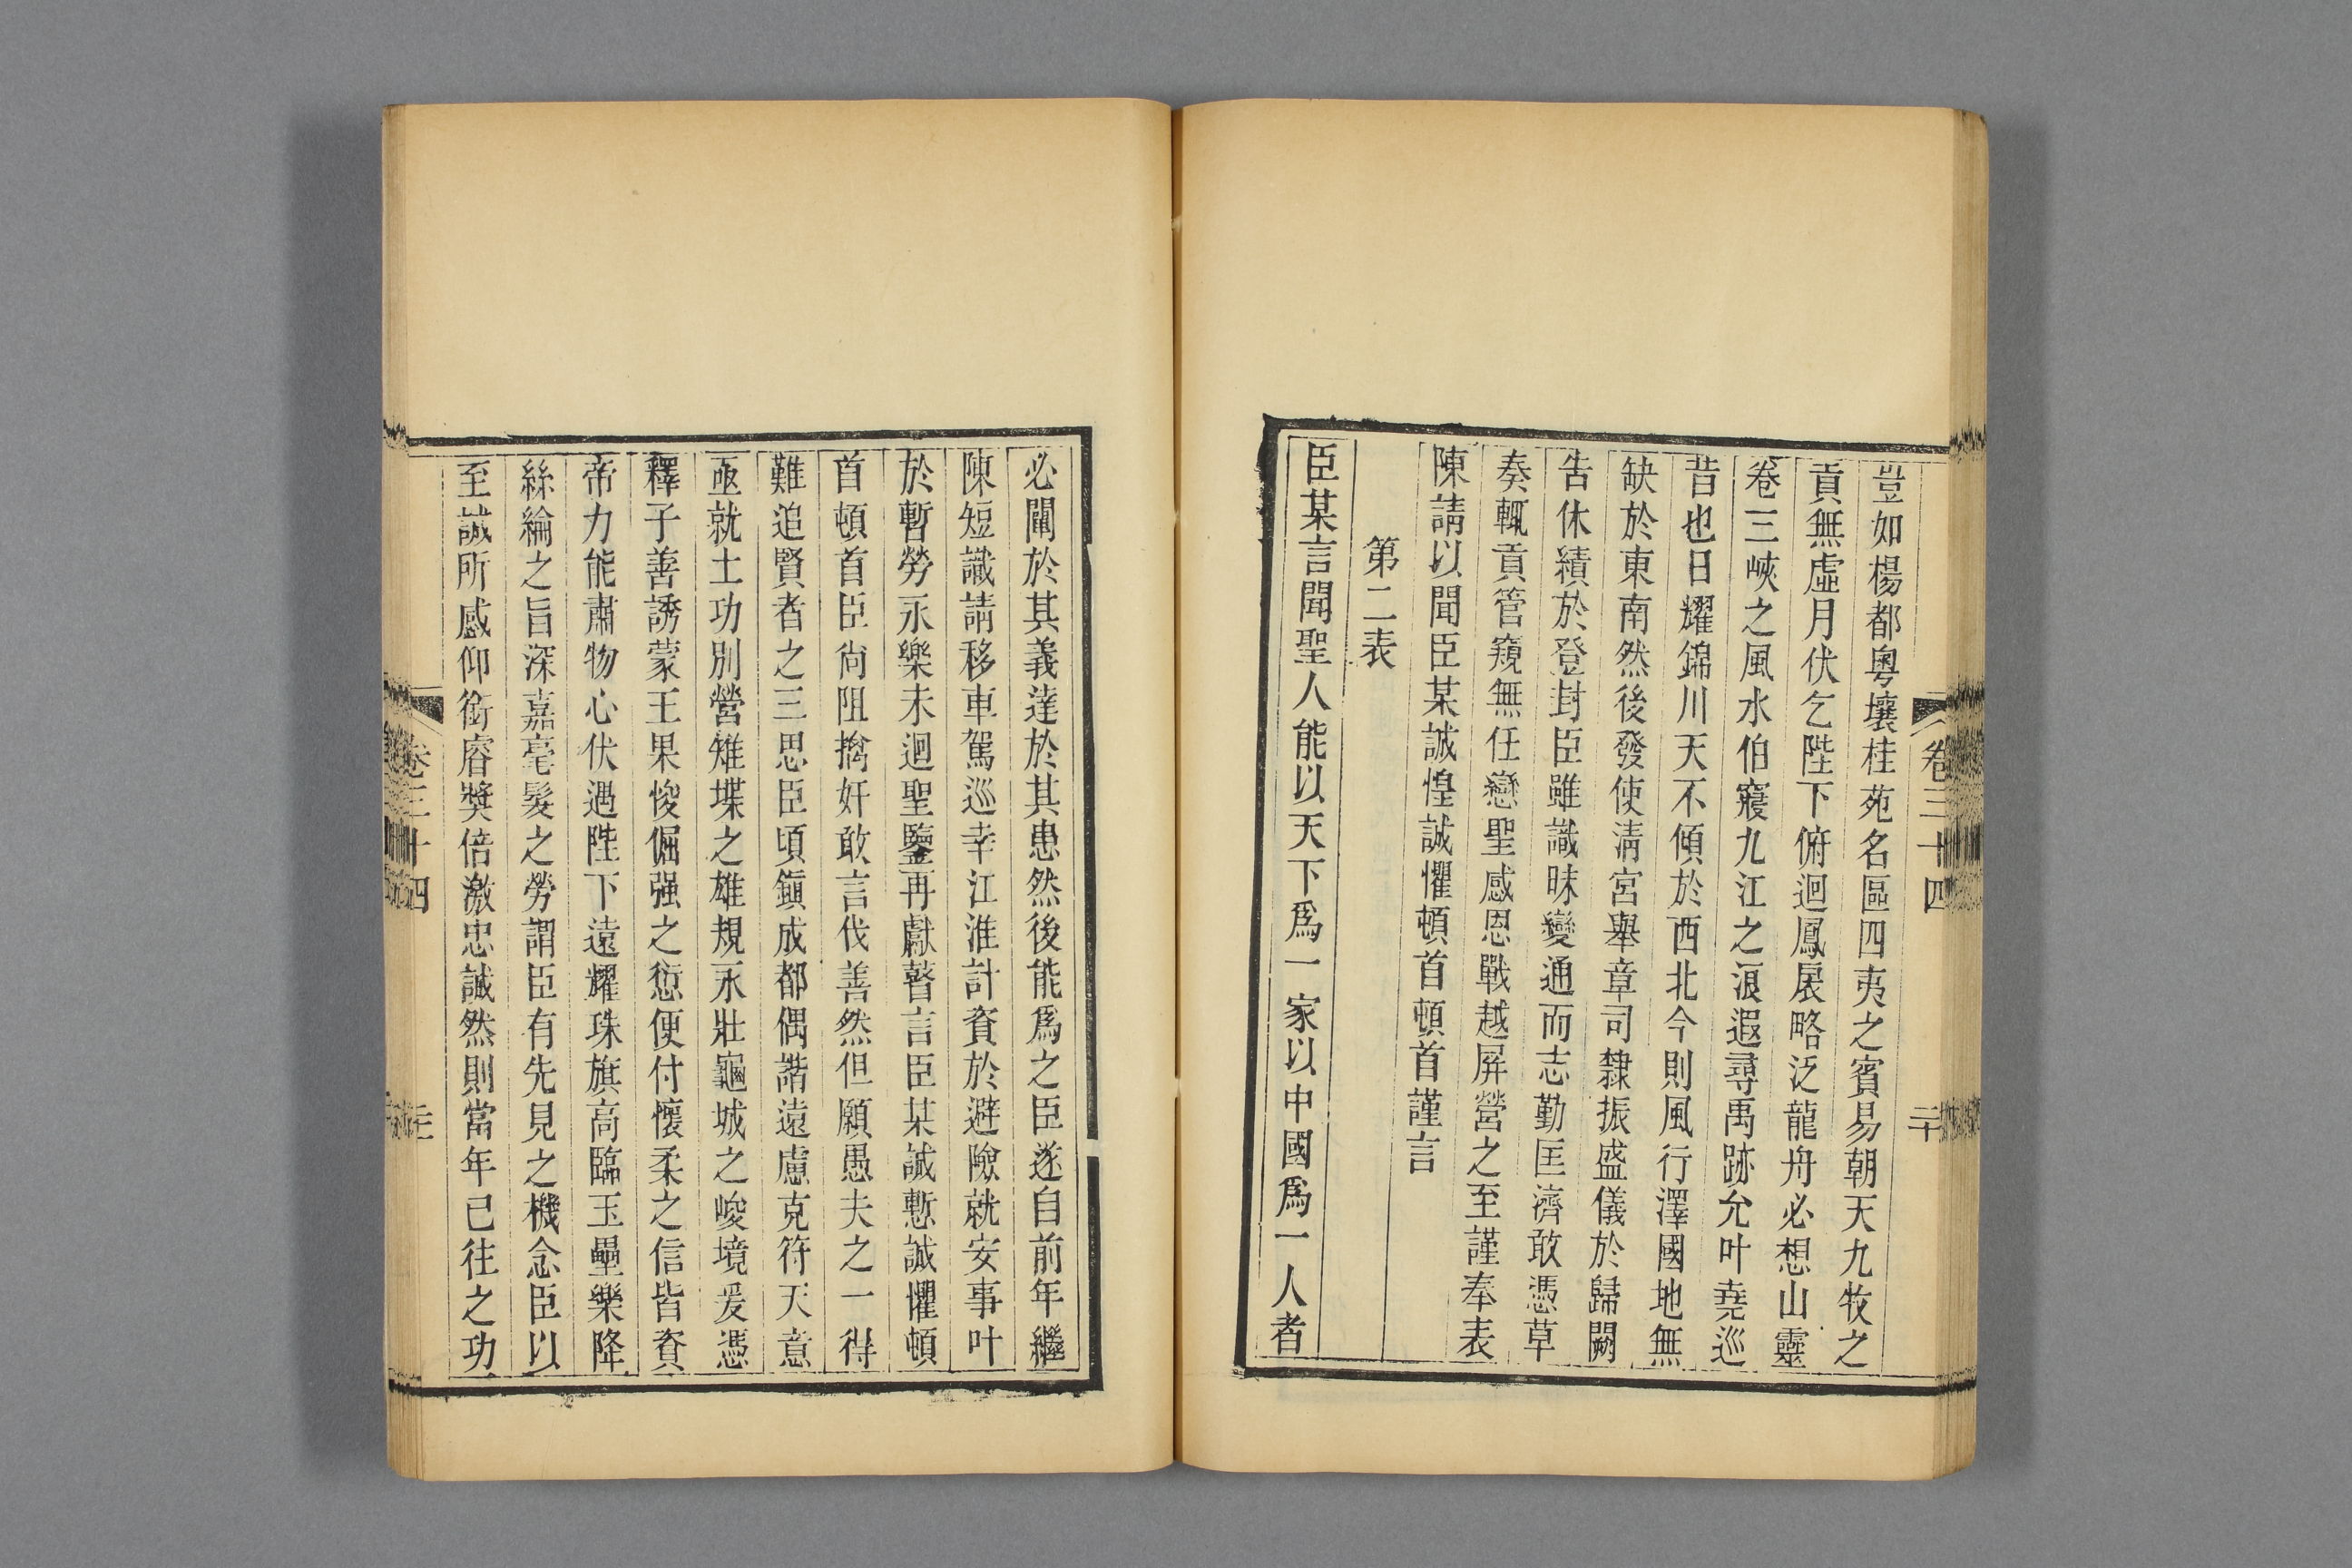 豈如楊都粤壤桂苑名區四夷之賓易朝天九牧之
貢無虛月伏乞陛下俯迴鳳扆略泛龍舟必想山靈
卷三峽之風水伯寢九江之浪遐尋禹跡允叶堯巡
昔也日耀錦川天不傾於西北今則風行澤國地無
缺於東南然後發使淸宮舉章司隸振盛儀於歸闕
吿休績於登封臣雖識昧變通而志勤匡濟敢憑草
奏輒貢管窺無任戀聖感恩戰越屛營之至謹奉表
陳請以聞臣某誠惶誠懼頓首頓首謹言
第二表
臣某言聞聖人能以天下爲一家以中國爲一人者
卷三十四
二十
必闡於其義達於其患然後能爲之臣遂自前年繼
陳短議請移車駕巡幸江淮計資於避險就安事叶
於暫勞永樂未迴聖鑒再獻瞽言臣某誠慙誠懼頓
首頓首臣尙阻擒奸敢言伐善然但願愚夫之一得
難追賢者之三思臣頃鎭成都偶諧遠慮克符天意
亟就土功別營雉堞之雄規永壯龜城之峻境爰憑
釋子善誘蒙王果悛倔强之愆便付懷柔之信皆資
帝力能肅物心伏遇陛下遠耀珠旗高臨玉壘樂降
絲綸之旨深嘉毫髮之勞謂臣有先見之機念臣以
至誠所感仰銜睿奬倍激忠誠然則當年已往之功
卷三十四